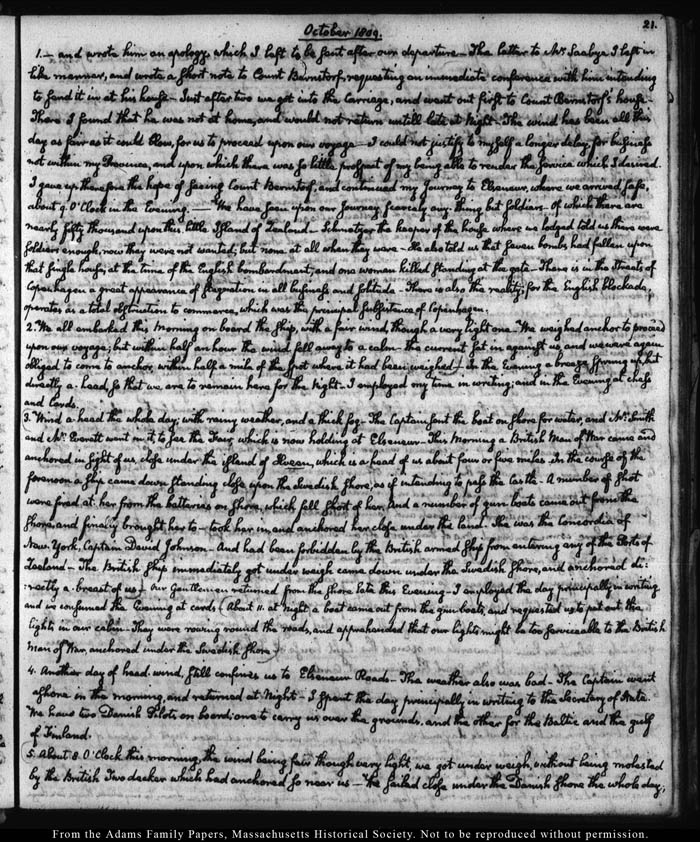 October 1809.
21.
1. — and wrote him an apology which I left to be sent after our departure — The letter to Mr. Saabye I left in
like manner, and wrote a short note to Count Bernstorf, requesting an immediate conference with him intending
to send it in at his house — Just after two we got into the Carriage, and went out first to Count Bernstorf's house —
There I found that he was not at home, and would not return untill late at Night — The wind has been all this
day as fair as it could blow, for us to proceed upon our voyage — I could not justify to myself a longer delay, for business
not within my Province, and upon which there was so little prospect of my being able to render the service which I desired.
I gave up therefore the hope of seeing Count Bernstorf, and continued my Journey to Elseneur, where we arrived safe,
about 9. O'Clock in the Evening. — We have seen upon our Journey scarcely any thing but soldiers — of which there are
nearly fifty thousand upon this little Island of Zealand — the keeper of the house where we lodged told us there were
soldiers enough, now they were not wanted; but none at all when they were — He also told us that seven bombs had fallen upon
that single house, at the time of the English bombardment; and one woman killed standing at the gate — There is in the Streets of
Copenhagen a great appearance of stagnation in all business and solitude — There is also the reality; for the English blockade,
operates as a total obstruction to commerce, which was the principal subsistence of Copenhagen.
2. We all embarked this Morning on board the ship, with a fair wind, though a very light one — We weighed anchor to proceed
upon our voyage; but within half an hour the wind fell away to a calm — the current set in against us and we were again
obliged to come to anchor, within half a mile of the spot where it had been weighed — In the Evening a breeze sprung up, but
directly a-head, so that we are to remain here for the Night — I employed my time in writing; and in the Evening at chess
and Cards.
3. Wind a-head the whole day; with rainy weather, and a thick fog — The Captain sent the boat on shore for water, and Mr. Smith
and Mr. Everett went in it, to see the Fair, which is now holding at Elseneur — This Morning a British Man of War came and
anchored in sight of us, close under the island of Hveen, which is a-head of us about four or five miles — In the course of the
forenoon a ship came down standing close upon the Swedish shore, as if intending to pass the Castle — A number of shot
were fired at her from the batteries on shore, which fell short of her. And a number of gun-boats came out from the
shore, and finally brought her to — took her in, and anchored her close under the land. She was the Concordia of
New-York, Captain David Johnson — And had been forbidden by the British armed ship from entering any of the Ports of
Zealand — The British ship immediately got under weigh came down under the Swedish shore, and anchored di-
-rectly a-breast of us — Our Gentlemen returned from the shore late this Evening — I employed the day principally in writing
and we consumed the Evening at cards (About 11. at Night a boat came out from the gun-boats, and requested us to put out the
lights in our cabin — They were rowing round the roads, and apprehended that our lights might be too serviceable to the British
Man of War, anchored under the Swedish shore.)
4. Another day of head wind, still confines us to Elseneur Roads — The weather also was bad — The Captain went
ashore in the morning, and returned at Night — I spent the day principally in writing to the Secretary of State.
We have two Danish Pilots on board; one to carry us over the grounds, and the other for the Baltic and the gulf
of Finland.
5. About 8 O'Clock this morning, the wind being fair though very light, we got under weigh, without being molested
by the British Two decker which had anchored so near us — We sailed close under the Danish shore the whole day;
From the Adams Family Papers, Massachusetts Historical Society. Not to be reproduced without permission.